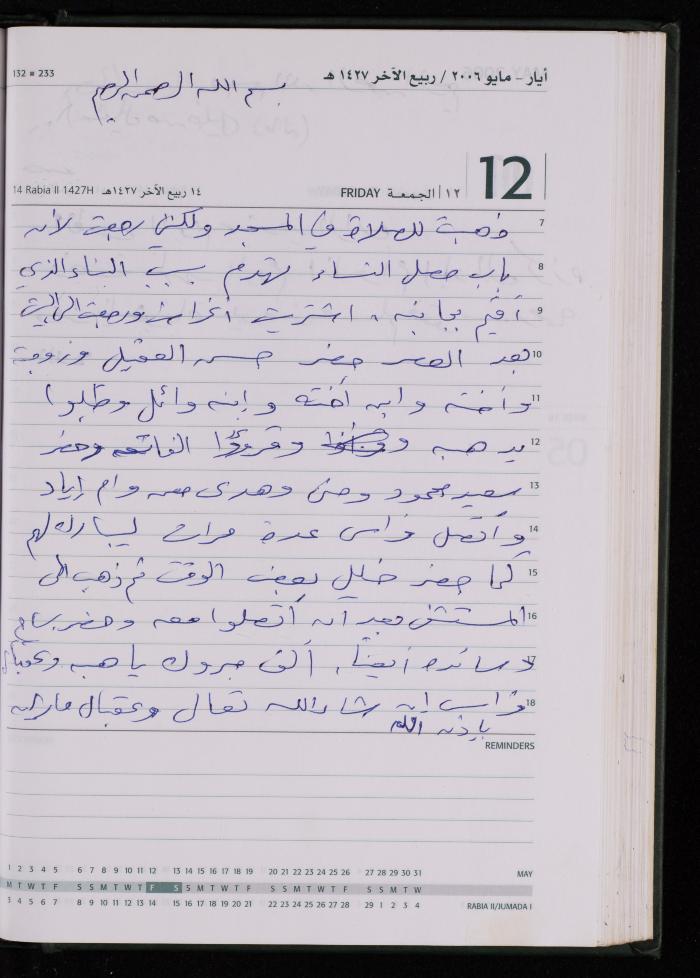 132 ▪ 233
أيار - مايو ٢٠٠٦ / ربيع الآخر ١٤٢٧ هـ
بسم الله الرحمن الرحيم
14 Rabia II 1427H ١٤ ربيع الآخر ١٤٢٧هـ
FRIDAY الجمعة ١٢
12
7 ذهبت للصلاة في المسجد ولكني رجعت لأن
8 باب مصلى النساء تهدم بسبب البناء الذي
9 أقيم بجانبه، اشتريت أغراض ورجعت الى البيت
10 بعد العصر حضر حسن العقيل وزوجة
11 وأخته وابن أخته وابنه وائل وطلبوا
12 يد هبه وقرؤا الفاتحه وحضر
13 سعيد محمود ومنى وهدى معه وام إياد
14 وأتصل فراس عدة مرات ليبارك لهم
15 كما حضر خليل بعض الوقت ثم ذهب الى
16 المستشفى بعد ان أتصلوا معه وحضر بسام
17 وسائده أيضاً، ألف مبروك يا هبه وعقبال
18 فراس إن شاء الله تعالى وعقبال مازن
بإذن الله
REMINDERS
1 2 3 4 5 6 7 8 9 10 11 12 13 14 15 16 17 18 19 20 21 22 23 24 25 26 27 28 29 30 31 MAY
M T W T F S S M T W T F S S M T W T F S S M T W T F S S M T W
3 4 5 6 7 8 9 10 11 12 13 14 15 16 17 18 19 20 21 22 23 24 25 26 27 28 29 1 2 3 4 RABIA II/JUMADA I